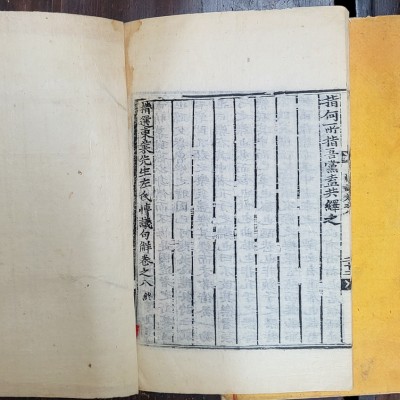 指何所指吾黨盍共繹之
精選東萊先生左氏博議句解卷之八 終